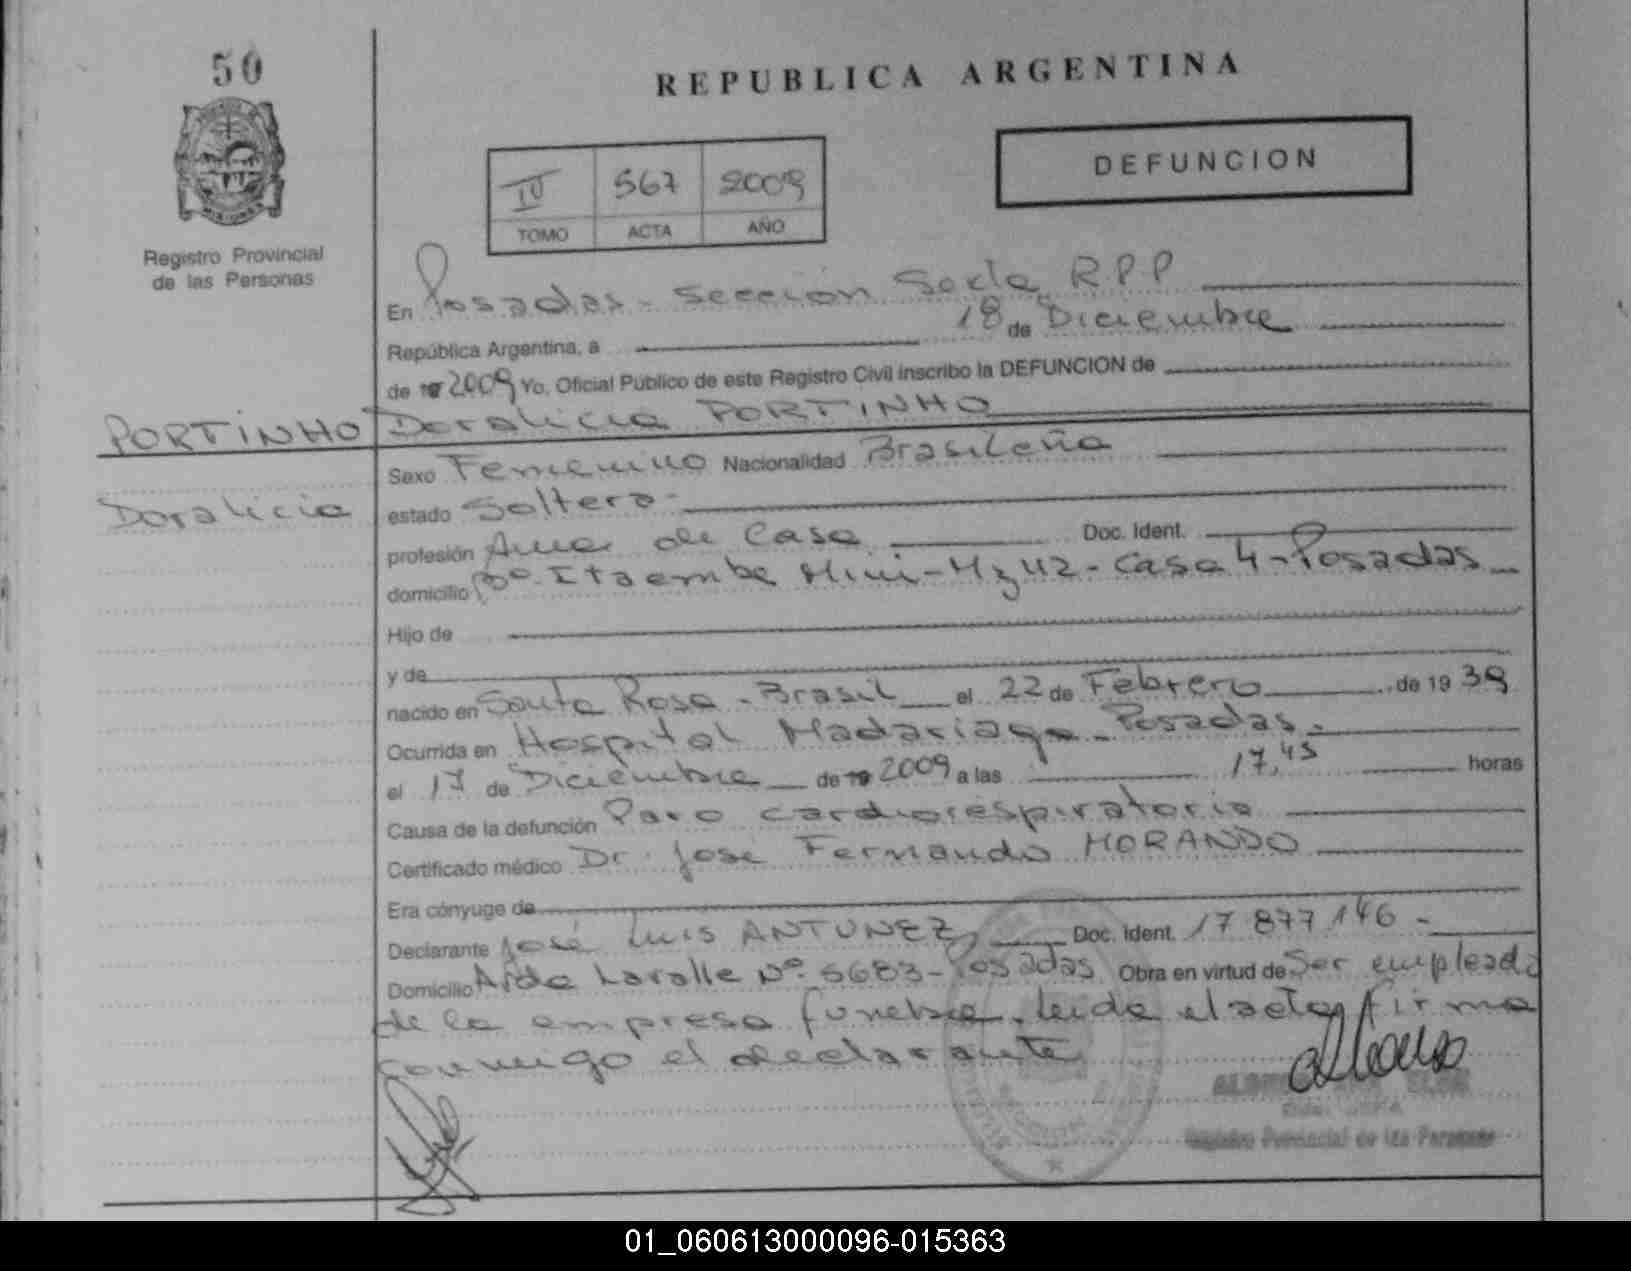 50
REPUBLICA ARGENTINA
DEFUNCION
IV 567 2009
TOMO ACTA AÑO
Registro Provincial
de las Personas
En Posadas - Sección Sede RPP
República Argentina, a 18 de Diciembre
de 19 2009 Yo, Oficial Público de este Registro Civil inscribo la DEFUNCION de
PORTINHO Doralicia PORTINHO
Sexo Femenino Nacionalidad Brasileña
Doralicia
estado Soltera -
profesión Ama de Casa Doc. Ident.
domicilio Bº. Itaembe Mini - Mz 42 - Casa 4 - Posadas
Hijo de
y de
nacido en Santa Rosa - Brasil el 22 de Febrero de 19 39
Ocurrida en Hospital Madariaga - Posadas.
el 17 de Diciembre de 19 2009 a las 17,45 horas
Causa de la defunción Paro cardiorespiratorio
Certificado médico Dr. José Fernando MORANDO
Era cónyuge de
Declarante José Luis ANTUNEZ, Doc. Ident. 17 877 146 -
Domicilio Avda Lavalle Nº. 5683 - Posadas Obra en virtud de Ser empleado
de la empresa funebre. Leida el acta, firma
conmigo el declarante
Registro Provincial de las Personas
01_060613000096-015363